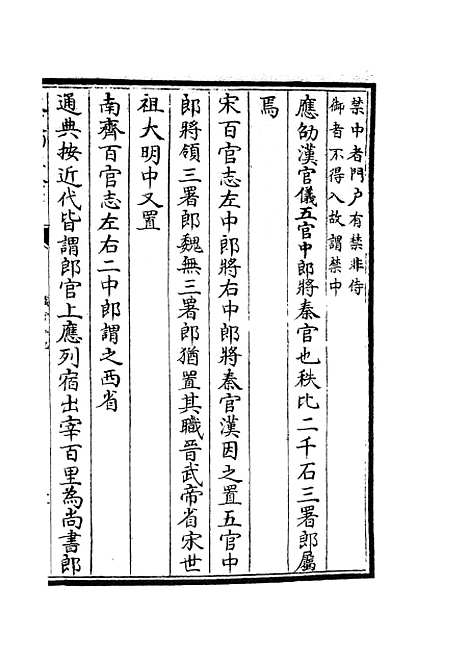 禁中者門户有禁非侍
御者不得入故謂禁中
應劭漢官儀五官中郎將秦官也秩比二千石三署郎屬
焉
宋百官志左中郎將右中郎將秦官漢因之置五官中
郎將領三署郎魏無三署郎猶置其職晉武帝省宋世
祖大明中又置
南齊百官志左右二中郎謂之西省
通典按近代皆謂郎官上應列宿出宰百里為尚書郎